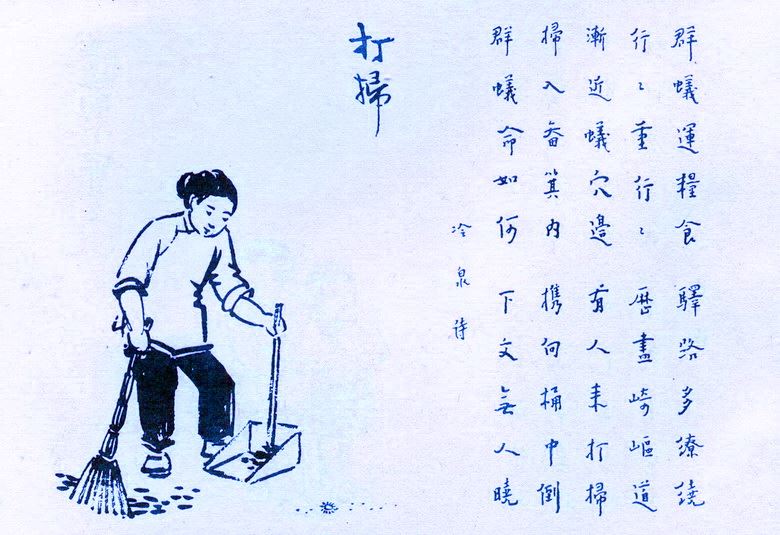 打掃
群蟻運糧食　驛路多繚繞
行〻重行〻　歷盡崎嶇道
漸近蟻穴邊　有人来打掃
掃入畚箕內　携向桶中倒
群蟻命如何　下文無人曉
冷泉詩